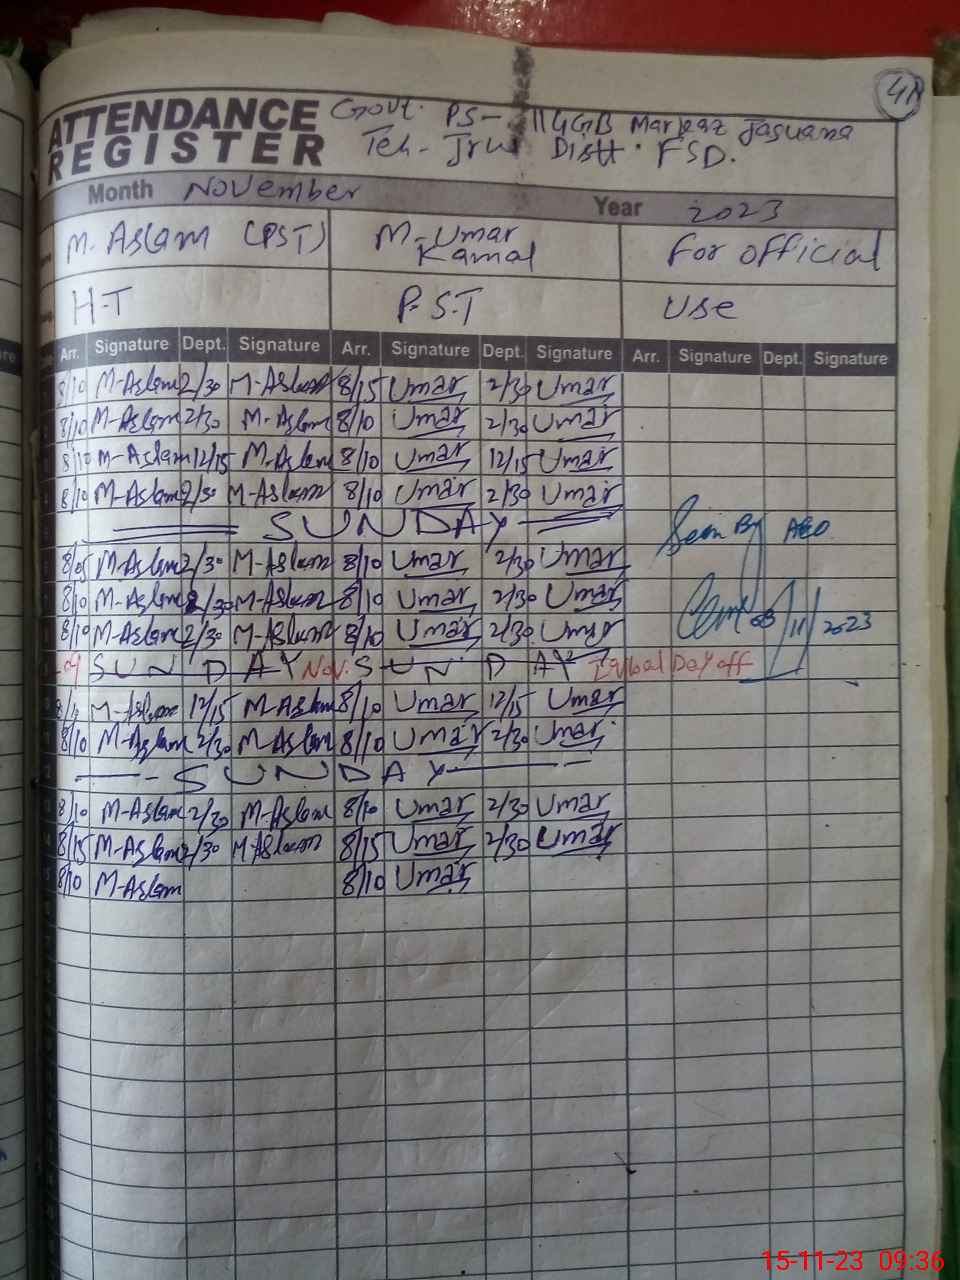 41
ATTENDANCE REGISTER
Govt. PS- 114GB Markaz Jaswana
Teh- Jrw Distt. FSD.
Month November Year 2023
M. Aslam (PST) M-Umar Kamal For official
H-T P.S.T Use
Arr. Signature Dept. Signature Arr. Signature Dept. Signature Arr. Signature Dept. Signature
8/10 M-Aslam 2/30 M-Aslam 8/15 Umar 2/30 Umar
8/10 M-Aslam 2/30 M-Aslam 8/10 Umar 2/30 Umar
8/10 M-Aslam 12/15 M-Aslam 8/10 Umar 12/15 Umar
8/10 M-Aslam 2/30 M-Aslam 8/10 Umar 2/30 Umar
SUNDAY Seen By AEO
8/05 M-Aslam 2/30 M-Aslam 8/10 Umar 2/30 Umar
8/10 M-Aslam 2/30 M-Aslam 8/10 Umar 2/30 Umar
8/10 M-Aslam 2/30 M-Aslam 8/10 Umar 2/30 Umar 08/11/2023
09 SUNDAY Nov. SUNDAY Iqbal Day off
M-Aslam 12/15 M-Aslam 8/10 Umar 12/15 Umar
8/10 M-Aslam 2/30 M-Aslam 8/10 Umar 2/30 Umar
SUNDAY
8/10 M-Aslam 2/30 M-Aslam 8/10 Umar 2/30 Umar
8/15 M-Aslam 2/30 M-Aslam 8/15 Umar 2/30 Umar
8/10 M-Aslam 8/10 Umar
15-11-23 09:36